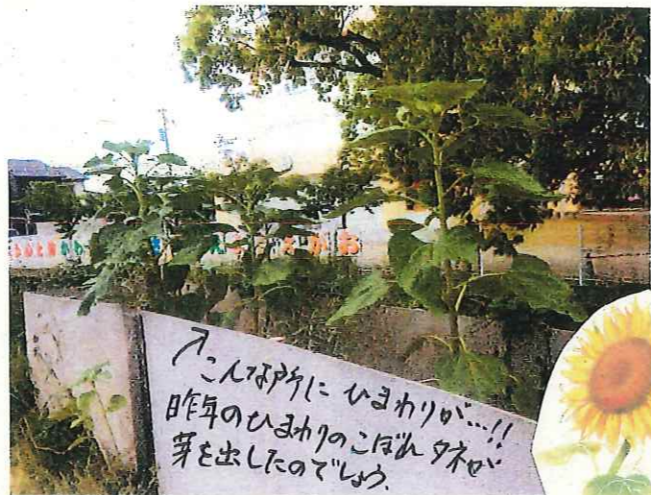 ↗こんな所に ひまわりが…!!
昨年のひまわりのこぼれ タネが
芽を出したのでしょう.